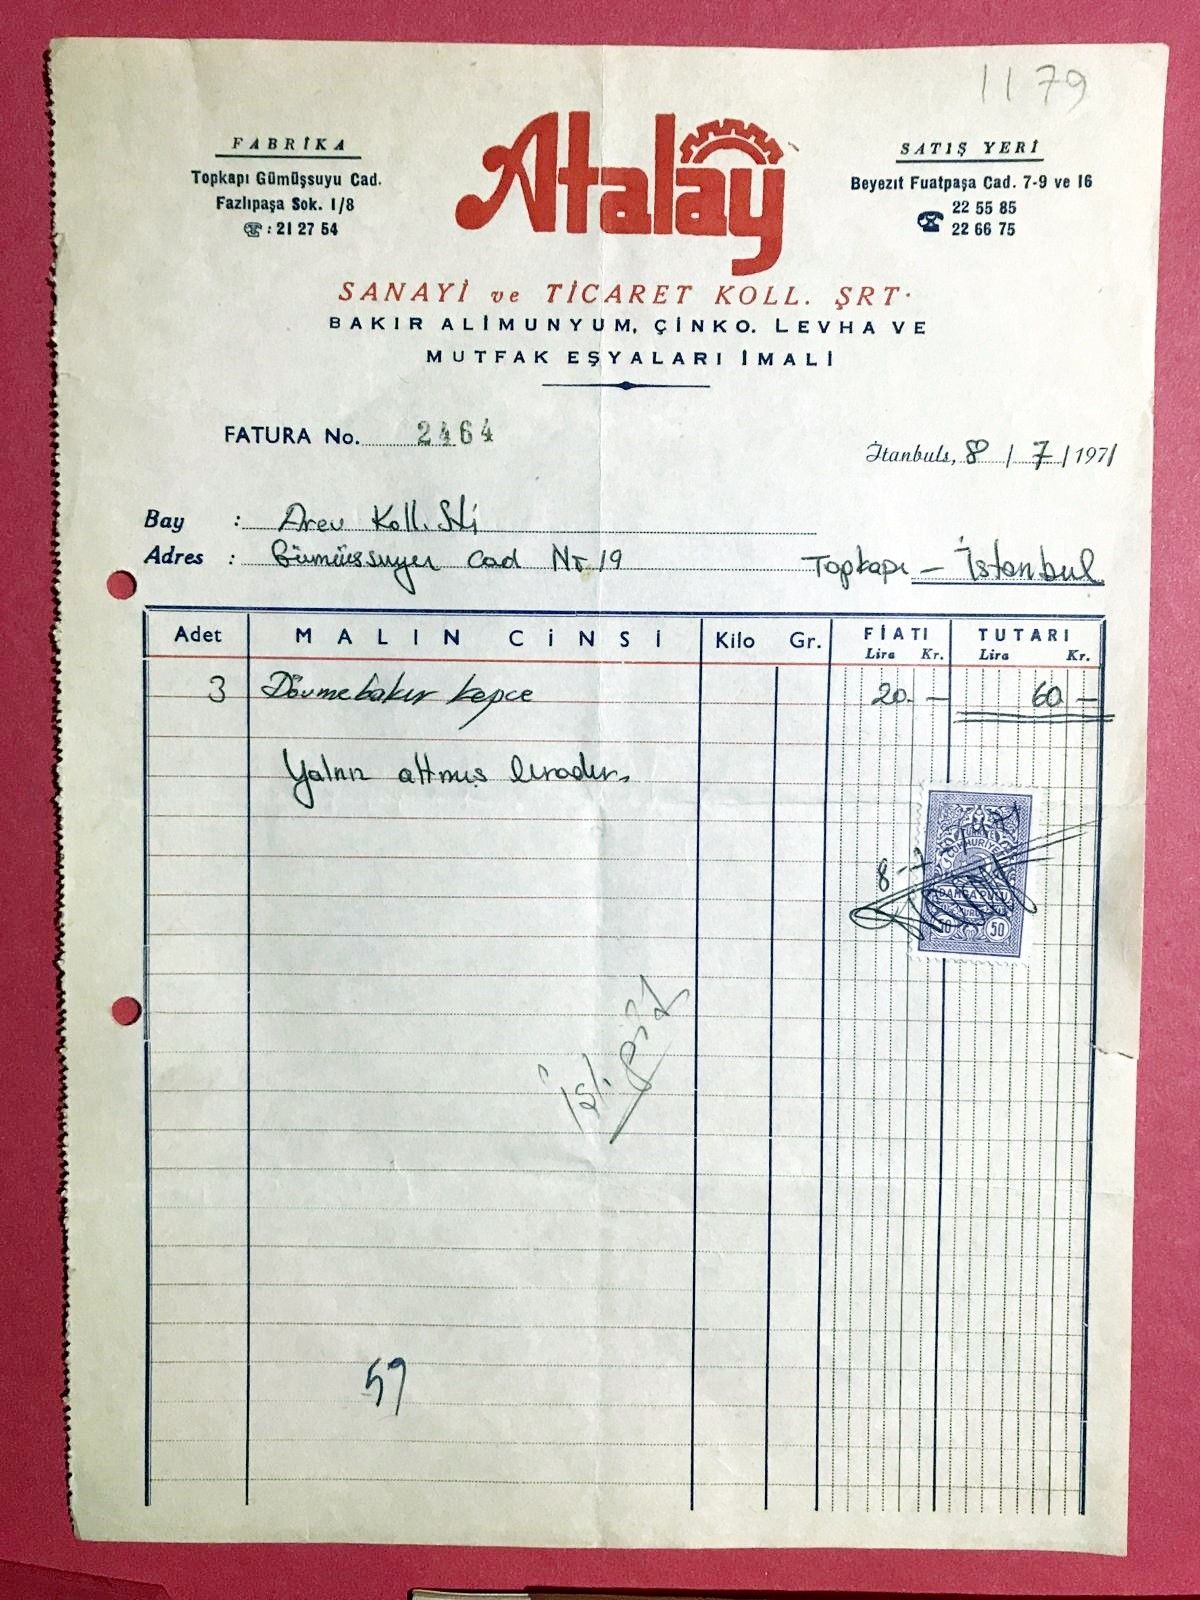 1179
FABRİKA
Topkapı Gümüşsuyu Cad.
Fazlıpaşa Sok. 1/8
☎ : 21 27 54
Atalay
SATIŞ YERİ
Beyezıt Fuatpaşa Cad. 7-9 ve 16
☎ 22 55 85
22 66 75
SANAYİ ve TİCARET KOLL. ŞRT.
BAKIR ALİMUNYUM, ÇİNKO. LEVHA VE
MUTFAK EŞYALARI İMALİ
FATURA No. 2464
İtanbuls, 8 / 7 / 1971
Bay : Arev Koll. Şti
Adres : Gümüşsuyu Cad Nr 19 Topkapı - İstanbul
Adet MALIN CİNSİ Kilo Gr. FİATI TUTARI
Lira Kr. Lira Kr.
3 Dövme bakır kepçe 20 - 60 -
Yalnız altmış liradır.
8-7-1971
CUMHURİYETİ
DAMGA PULU
50 50
59